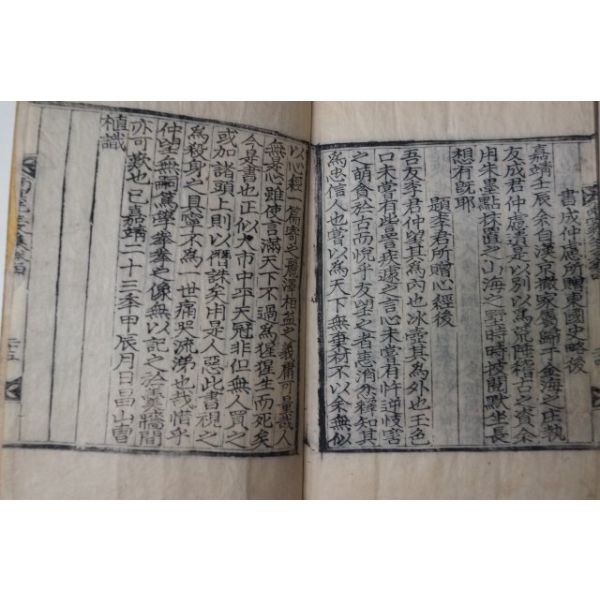 書成仲慮所贈東國史略後
嘉靖壬辰余自漢京撤家賫歸于金海之庄執
友成君仲慮遺是以別以爲荒陲稽古之資余
用朱墨點抹置之山海之野時時披閱默坐長
想有旣耶
題李君所贈心經後
吾友李君仲望其爲內也冰壺其爲外也玉色
口未嘗有訾訾戕遽之言心未嘗有忤逆忮害
之萌會於古而悅乎友望之者恚消亦釋知其
爲忠信人也嘗以爲天下無棄材不以余無似
以心經一篇寄之麗澤相益之義庸可量哉人
無是心雖使言滿天下不過爲猩猩生而死矣
今是書也正似人市中平天冠非但無人買之
或加諸頭上則以僭誅矣用是人惡此書視之
爲殺身之具寧不爲一世痛哭流涕也哉惜乎
仲望無嗣爲學拳拳之像無以記之於羹墻間
亦可歎也已嘉靖二十三季甲辰月日昌山曺
植識